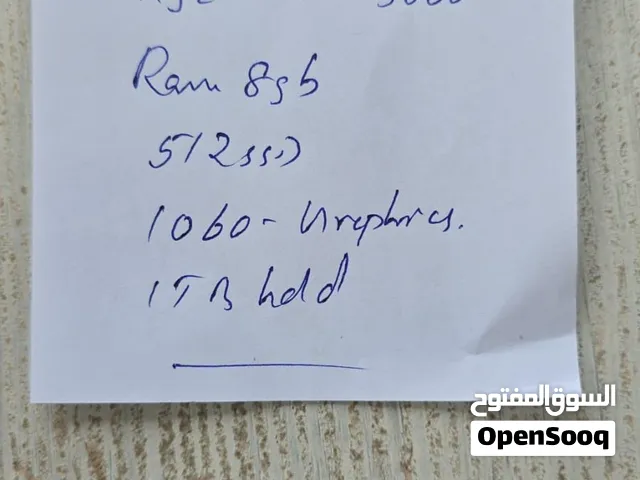 Ram 8gb
512ssd
1060- Graphics.
1TB hdd
السوق المفتوح
OpenSooq